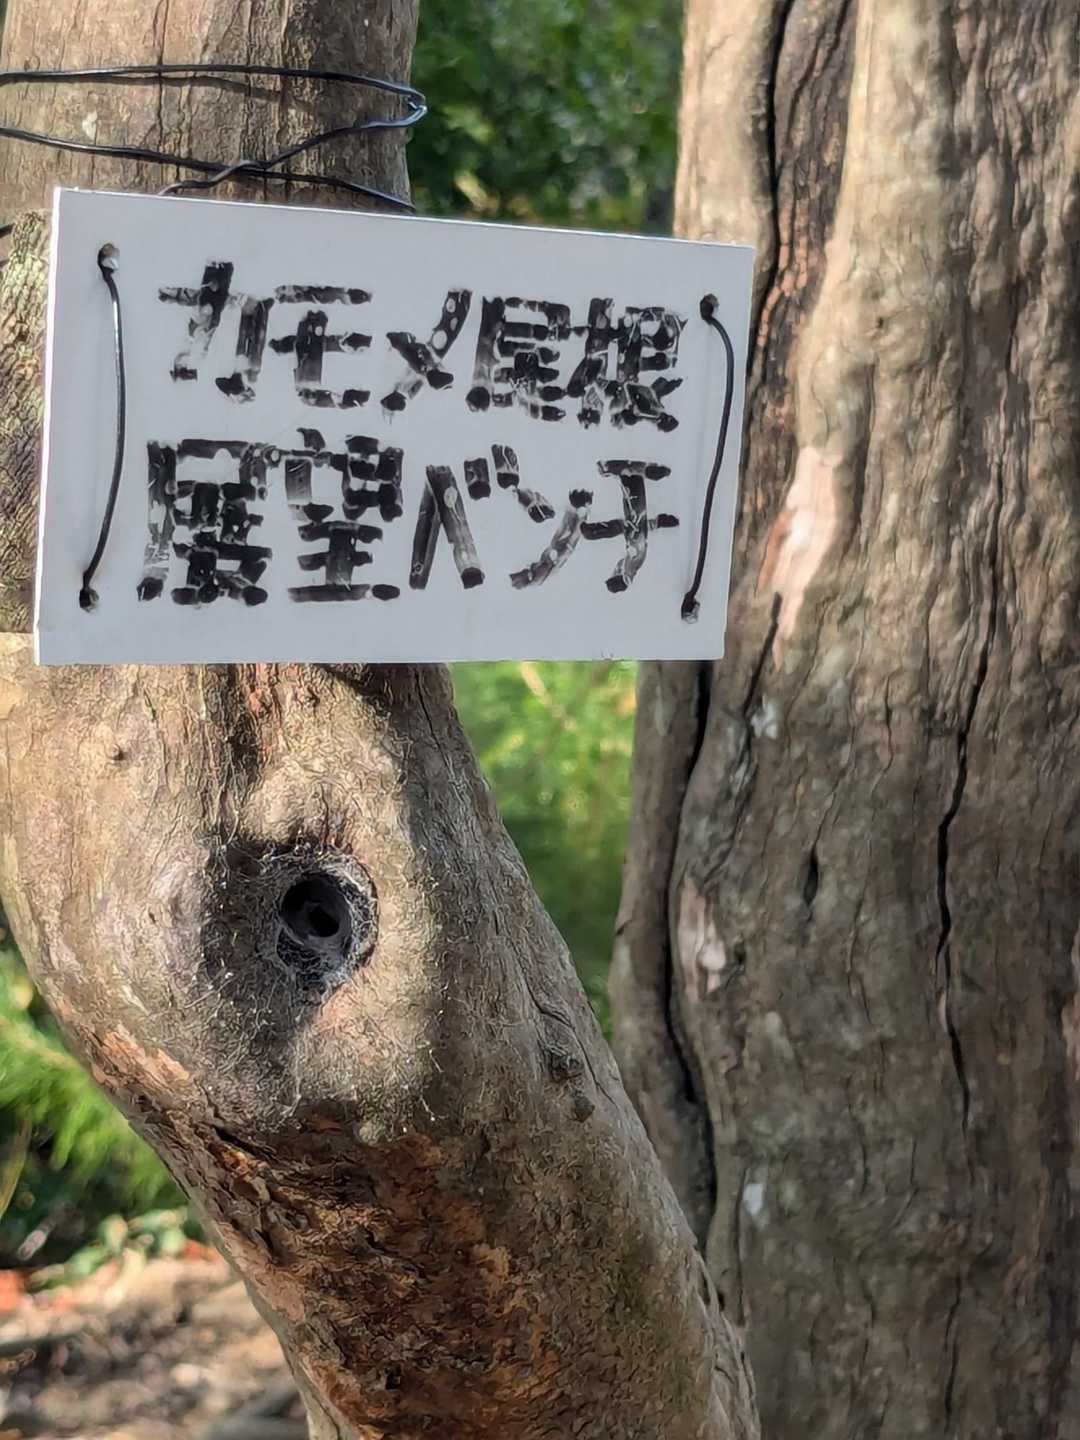 カモメ尾根
展望ベンチ